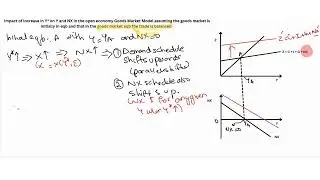 Impact of increase in Y* on Y and NX in the open economy Goods Market Model assuming the goods market is
initially in eqb and that in the goods market eqb the trade is balanced
Initial eqb. A with Y=YA and NX=0
Y*↑ ⇒ X↑ ⇒ NX↑ ⇒ ① Demand schedule
(X = X(Y*, ε)
shifts upwards
(parallel shift)
② NX schedule also
shifts up.
(NX ↑ for any given
Y
A
YA
Y
NX
O
NX=0
YA
Y